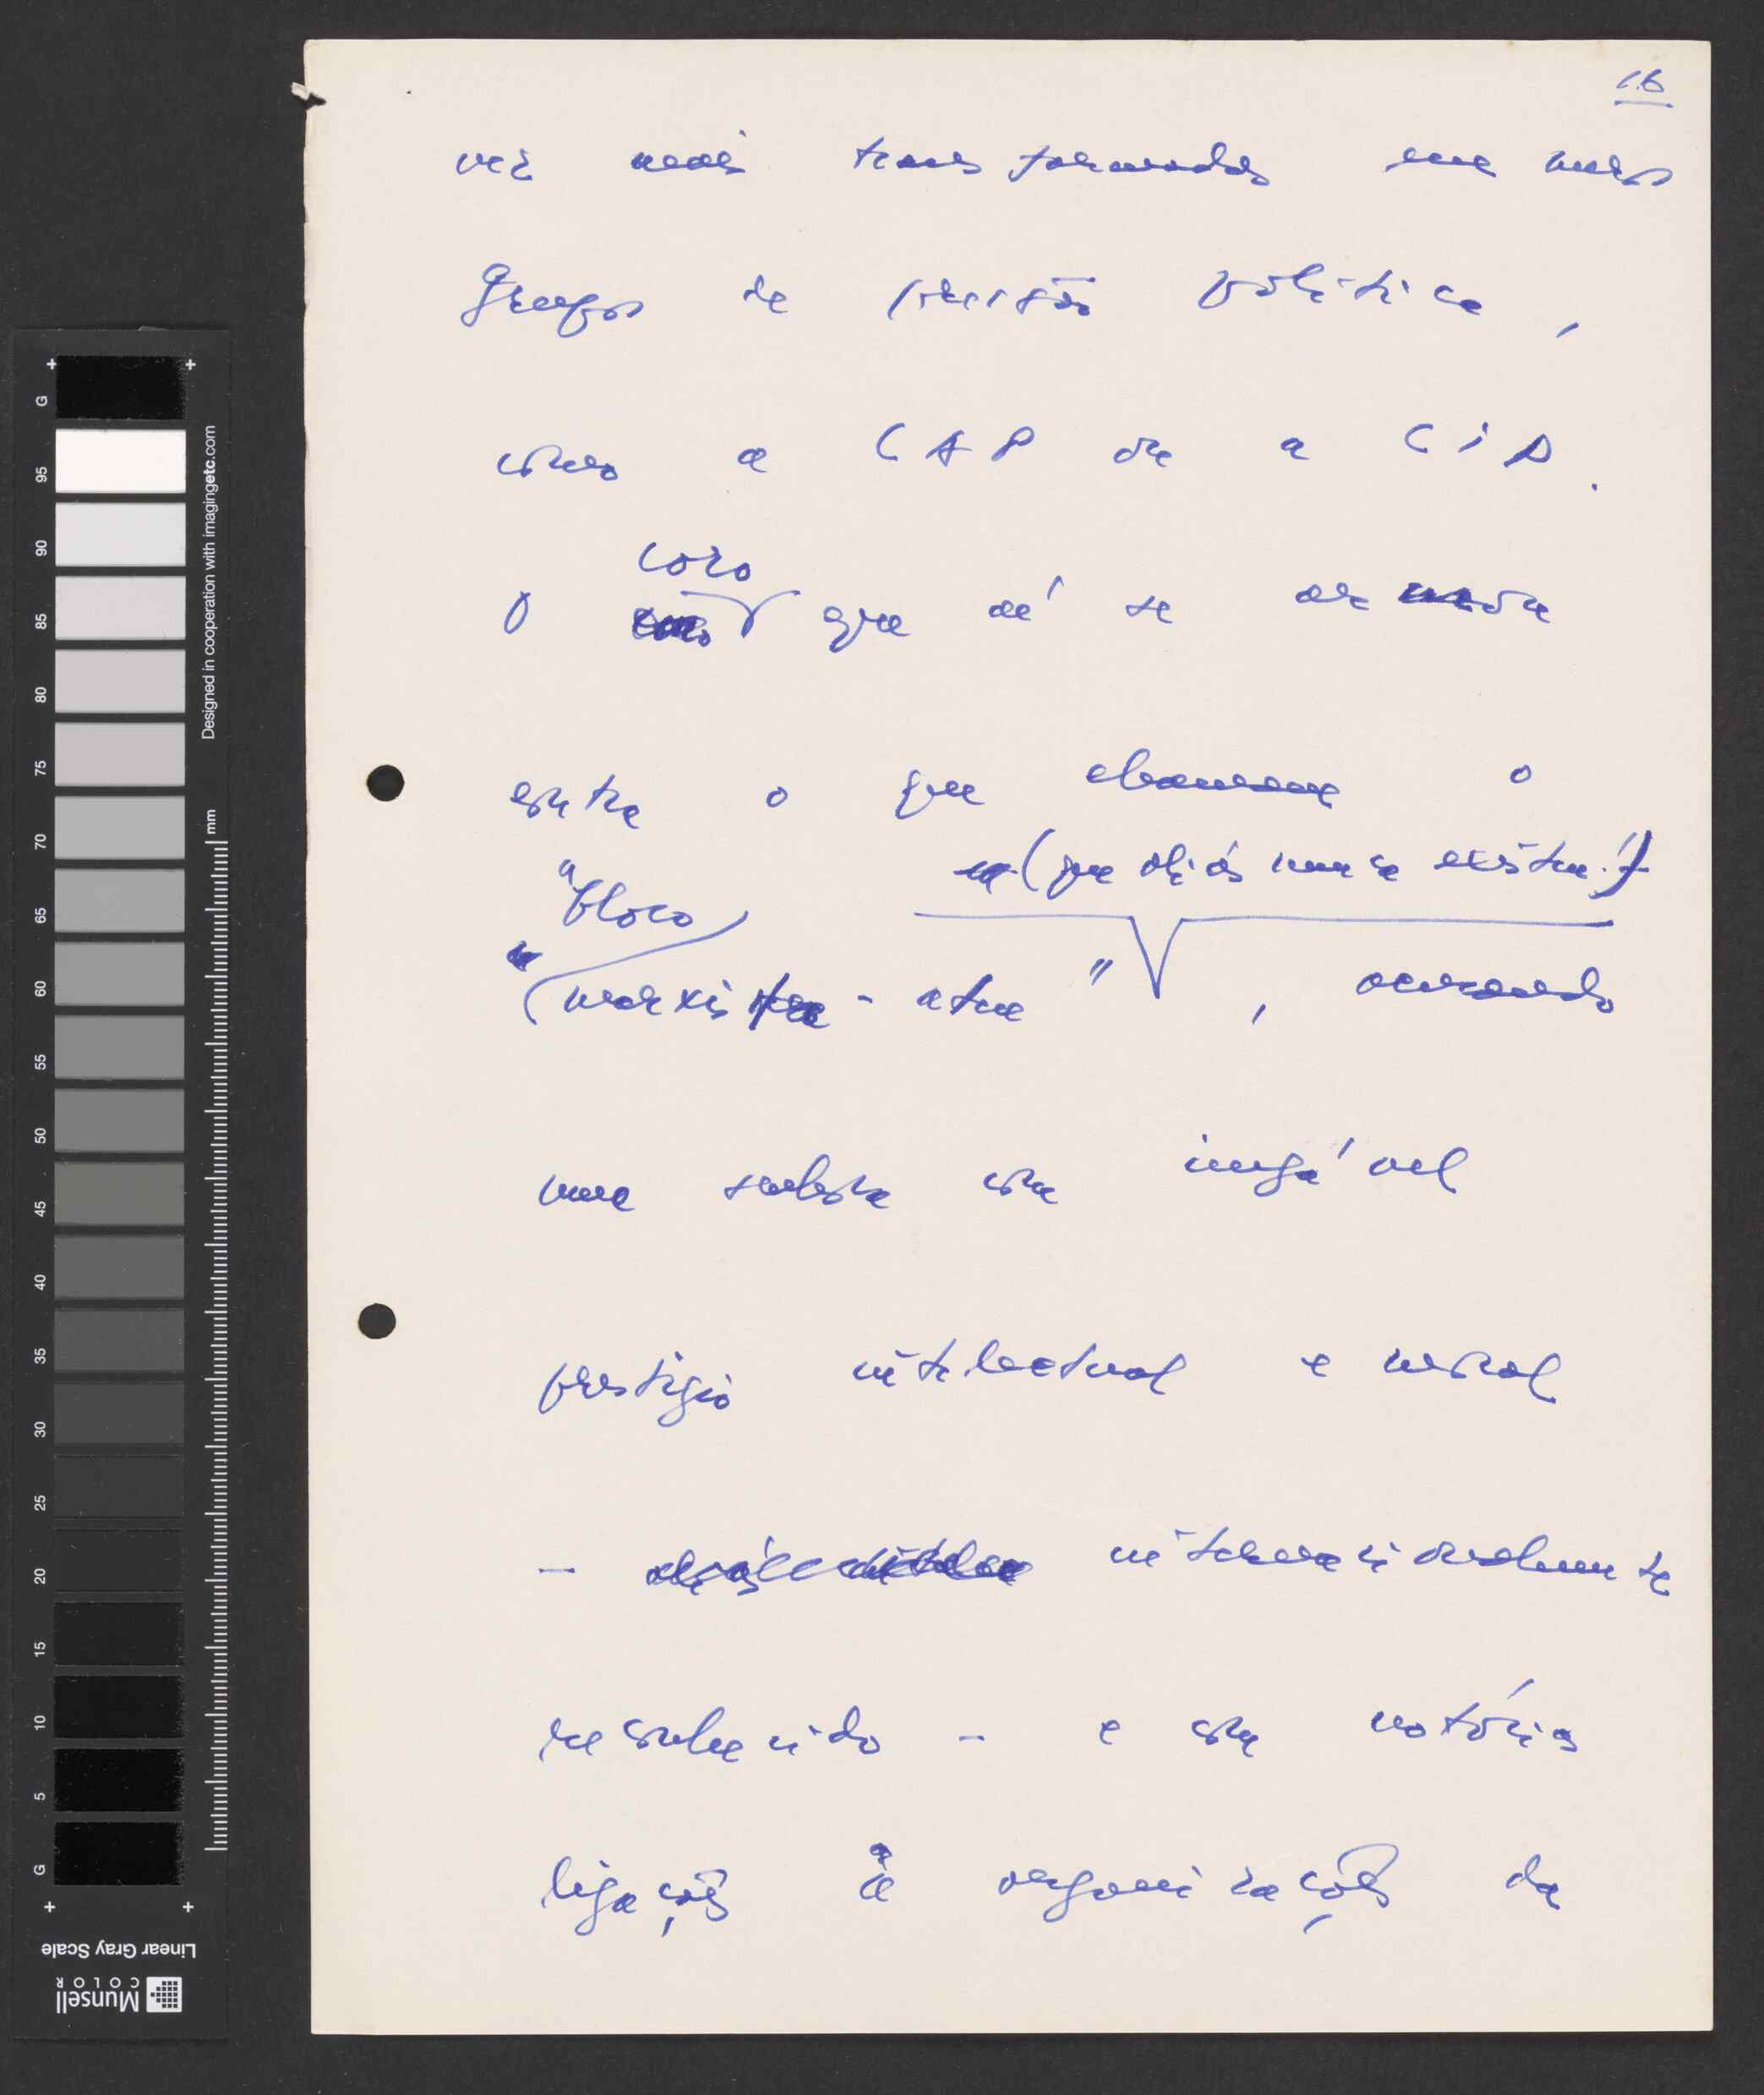 16
vez mais transformadas em meros
grupos de pressão política,
como a CAP ou a CIP.
coro
O que aí se arma
contra o que chamam o
(que aliás nunca existiu!)
"bloco
marxista-ateu", acusando
com inegável
prestígio intelectual e moral
- internacionalmente
reconhecido - e com notórias
ligações a organizações da
Designed in cooperation with imagingetc.com
mm
G 95 90 85 80 75 70 65 60 55 50 45 40 35 30 25 20 15 10 5 G
Linear Gray Scale
Munsell
COLOR